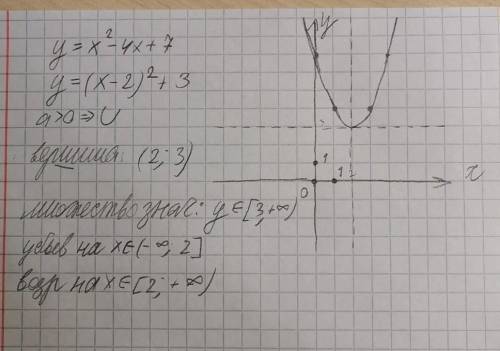 y = x² - 4x + 7
y = (x - 2)² + 3
a > 0 ⇒ ∪
вершина: (2; 3)
множество знач: y ∈ [3; +∞)
убыв на x ∈ (-∞; 2]
возр на x ∈ [2; +∞)
y
1
0
1
x